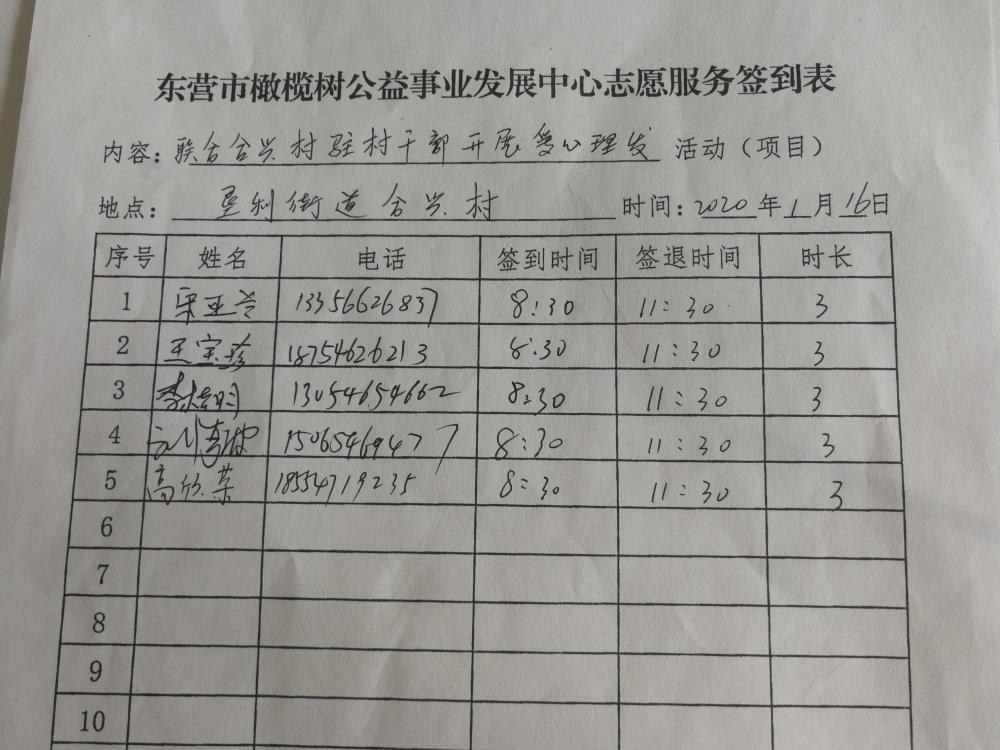 东营市橄榄树公益事业发展中心志愿服务签到表
内容：联合合兴村驻村干部开展爱心理发 活动（项目）
地点：垦利街道合兴村 时间：2020年1月16日
序号 姓名 电话 签到时间 签退时间 时长
1 宋亚兰 13356626837 8:30 11:30 3
2 王宝珍 18754626213 8:30 11:30 3
3 13054654662 8:30 11:30 3
4 15065469477 8:30 11:30 3
5 高欣荣 18554719235 8:30 11:30 3
6
7
8
9
10